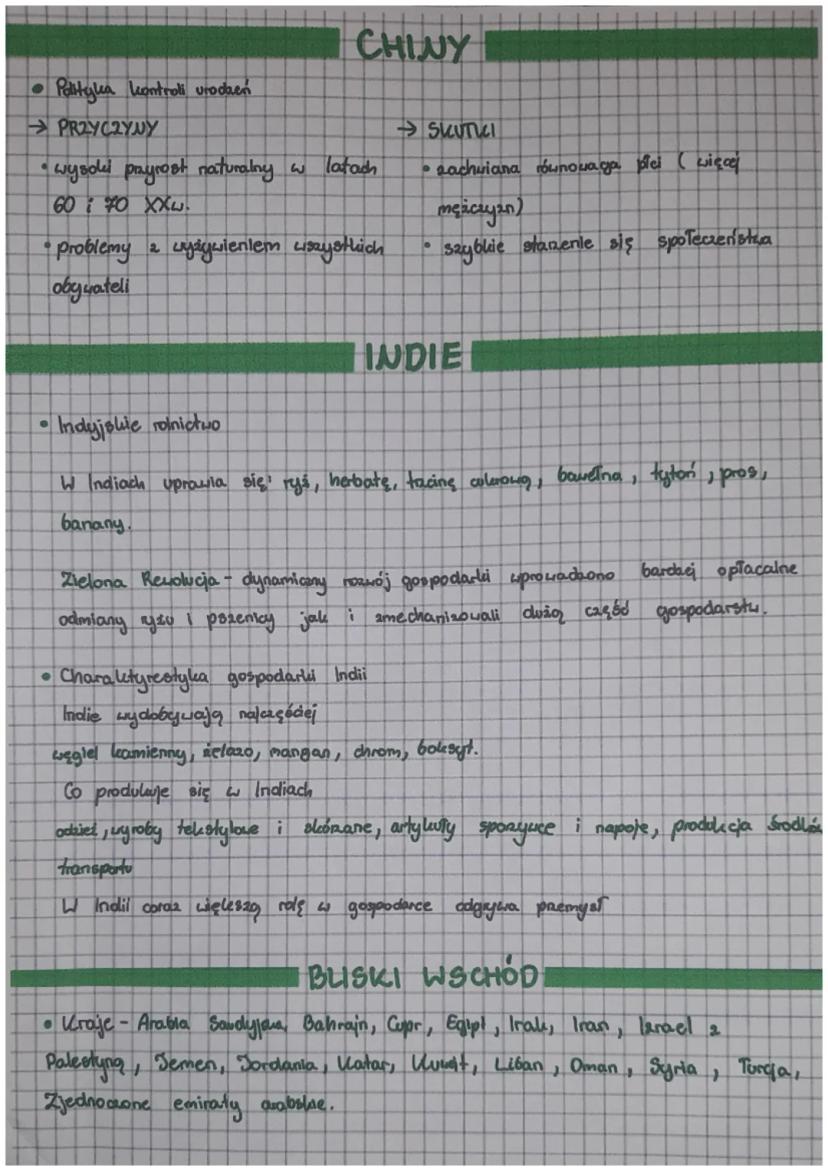 CHINY
• Polityka kontroli urodzeń
→ PRZYCZYNY
• wysoki przyrost naturalny w latach
60 i 70 XXw.
• problemy z wyżywieniem wszystkich
obywateli
→ SKUTKI
• zachwiana równowaga płci (więcej
mężczyzn)
• szybkie starzenie się społeczeństwa
INDIE
• Indyjskie rolnictwo
W Indiach uprawia się: ryż, herbatę, tacinę cukrową, bawełna, tytoń, pros,
banany.
Zielona Rewolucja - dynamiczny rozwój gospodarki wprowadzono bardziej opłacalne
odmiany ryżu i pszenicy jak i zmechanizowali dużą część gospodarstw.
• Charaktyrestyka gospodarki Indii
Indie wydobywają najczęściej
węgiel kamienny, żelazo, mangan, chrom, boksyt.
Co produkuje się w Indiach
odzież, wyroby tekstylowe i skórzane, artykuły spożywcze i napoje, produkcja środków
transportu
W Indil coraz większą rolę w gospodarce odgrywa przemysł
BLISKI WSCHÓD
• Kraje - Arabia Saudyjska, Bahrajn, Cypr, Egipt, Irak, Iran, Izrael z
Palestyną, Jemen, Jordania, Katar, Kuwejt, Liban, Oman, Syria, Turcja,
Zjednoczone emiraty arabskie.